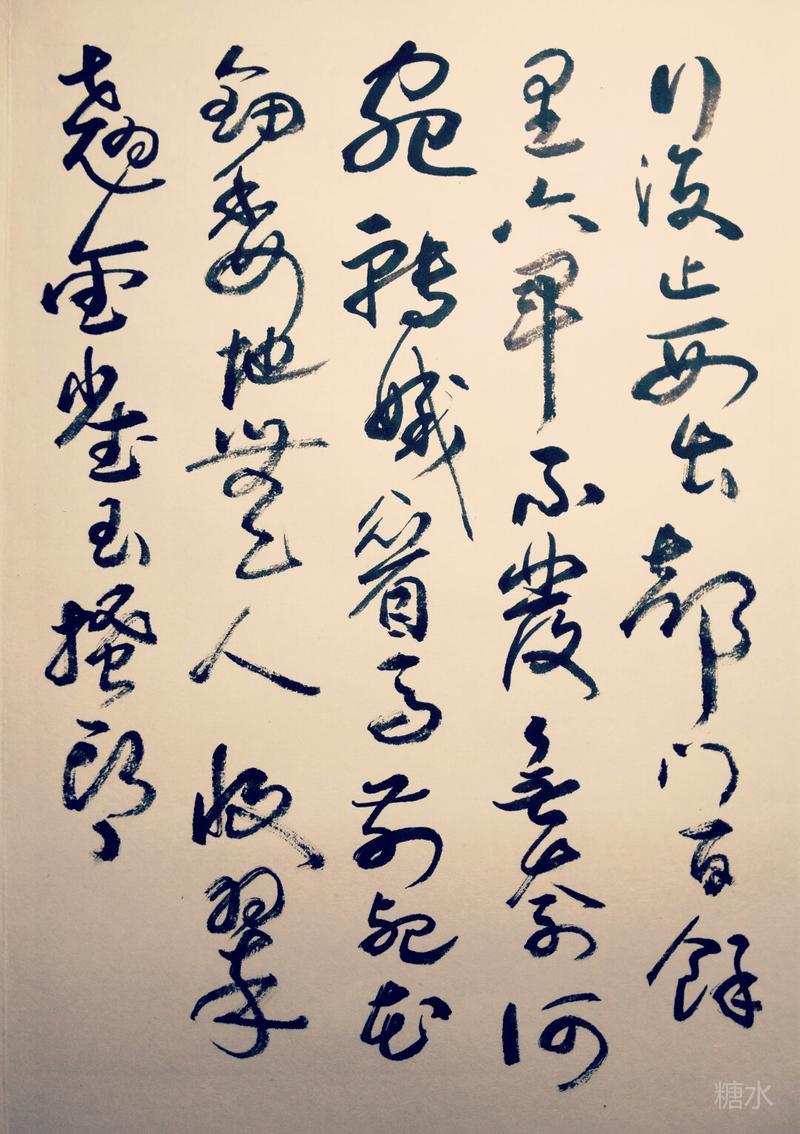 行復止西出都門百餘
里六軍不發無奈何
宛轉娥眉馬前死花
鈿委地無人收翠
翹金雀玉搔頭
糖水